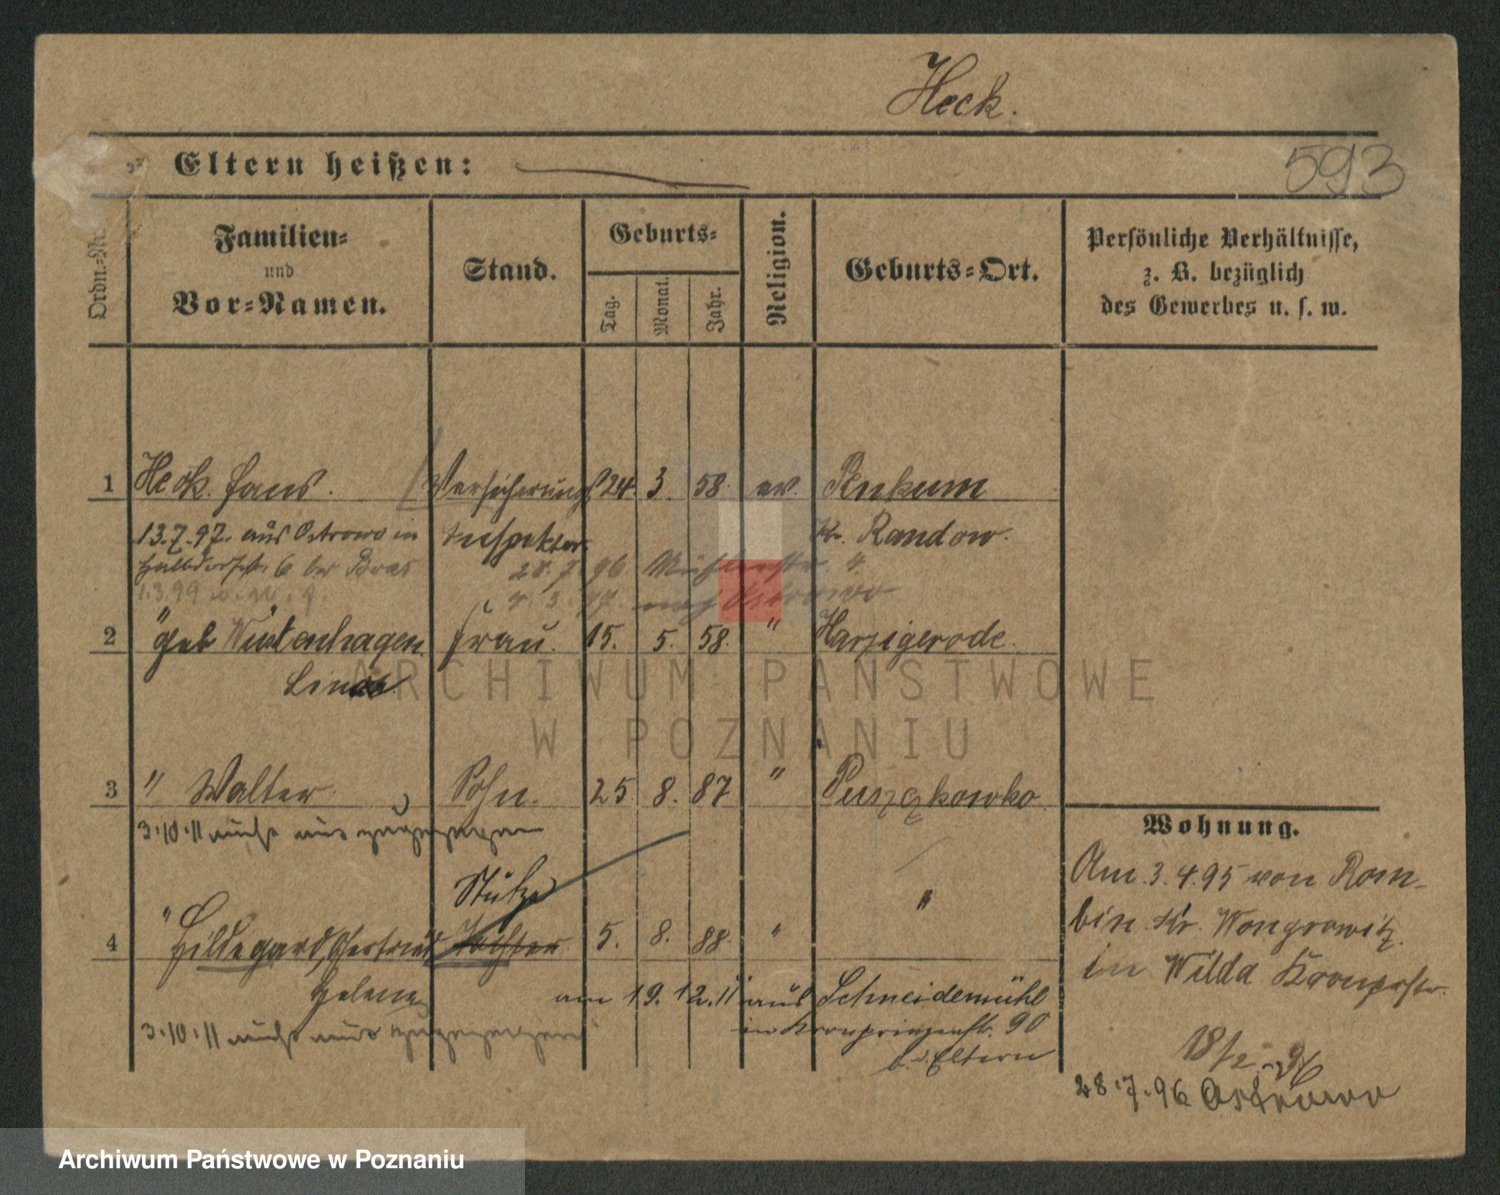 Heck.
Eltern heißen:
593
Ordn.-Nr.
Familien-
und
Vor-Namen.
Stand.
Geburts-
Tag.
Monat.
Jahr.
Religion.
Geburts-Ort.
Persönliche Verhältnisse,
z. B. bezüglich
des Gewerbes u. s. w.
1 Heck. Hans. Versicherungs 24. 3. 58. ev. Penkum
13.7.97. aus Ostrowo in Inspektor Kr. Randow.
28. 7. 96
1.3.99
4. 3. 97. nach Ostrowo
2 " geb Wiedenhagen Frau. 15. 5. 58. " Harzigerode.
Lina
ARCHIWUM PAŃSTWOWE
W POZNANIU
3 " Walter Sohn. 25 8. 87 "
3.10.11 nicht mit zugezogen
Wohnung.
Am 3.4.95 von Rom-
bin Kr. Wongrowitz
in Wilda Kronprstr.
18/2
28.7.96 Ostrowo
Stütze
4 " Hildegard, Gertrud Tochter 5. 8. 88. " "
Helene am 19.12.11 aus Schneidemühl
in Kronprinzenstr. 90
b. d. Eltern
3.10.11 nicht mit zugezogen
Archiwum Państwowe w Poznaniu